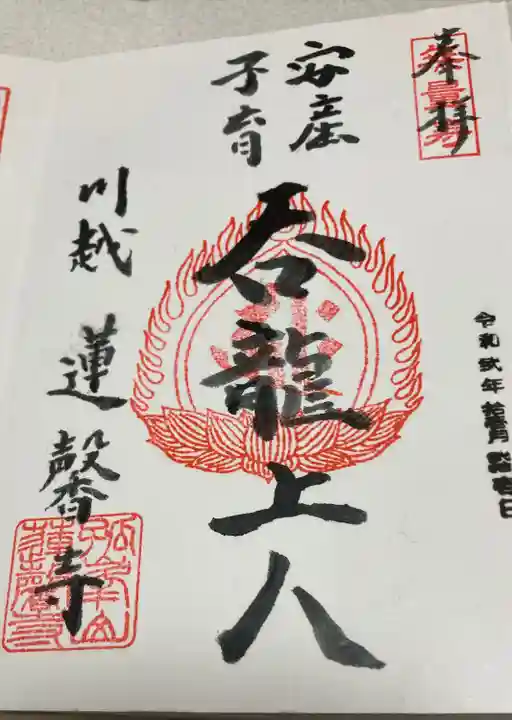 奉拝
令和弐年 拾壹月 壱日
安産
子育
呑龍上人
川越 蓮馨寺
孤峯山
蓮馨寺